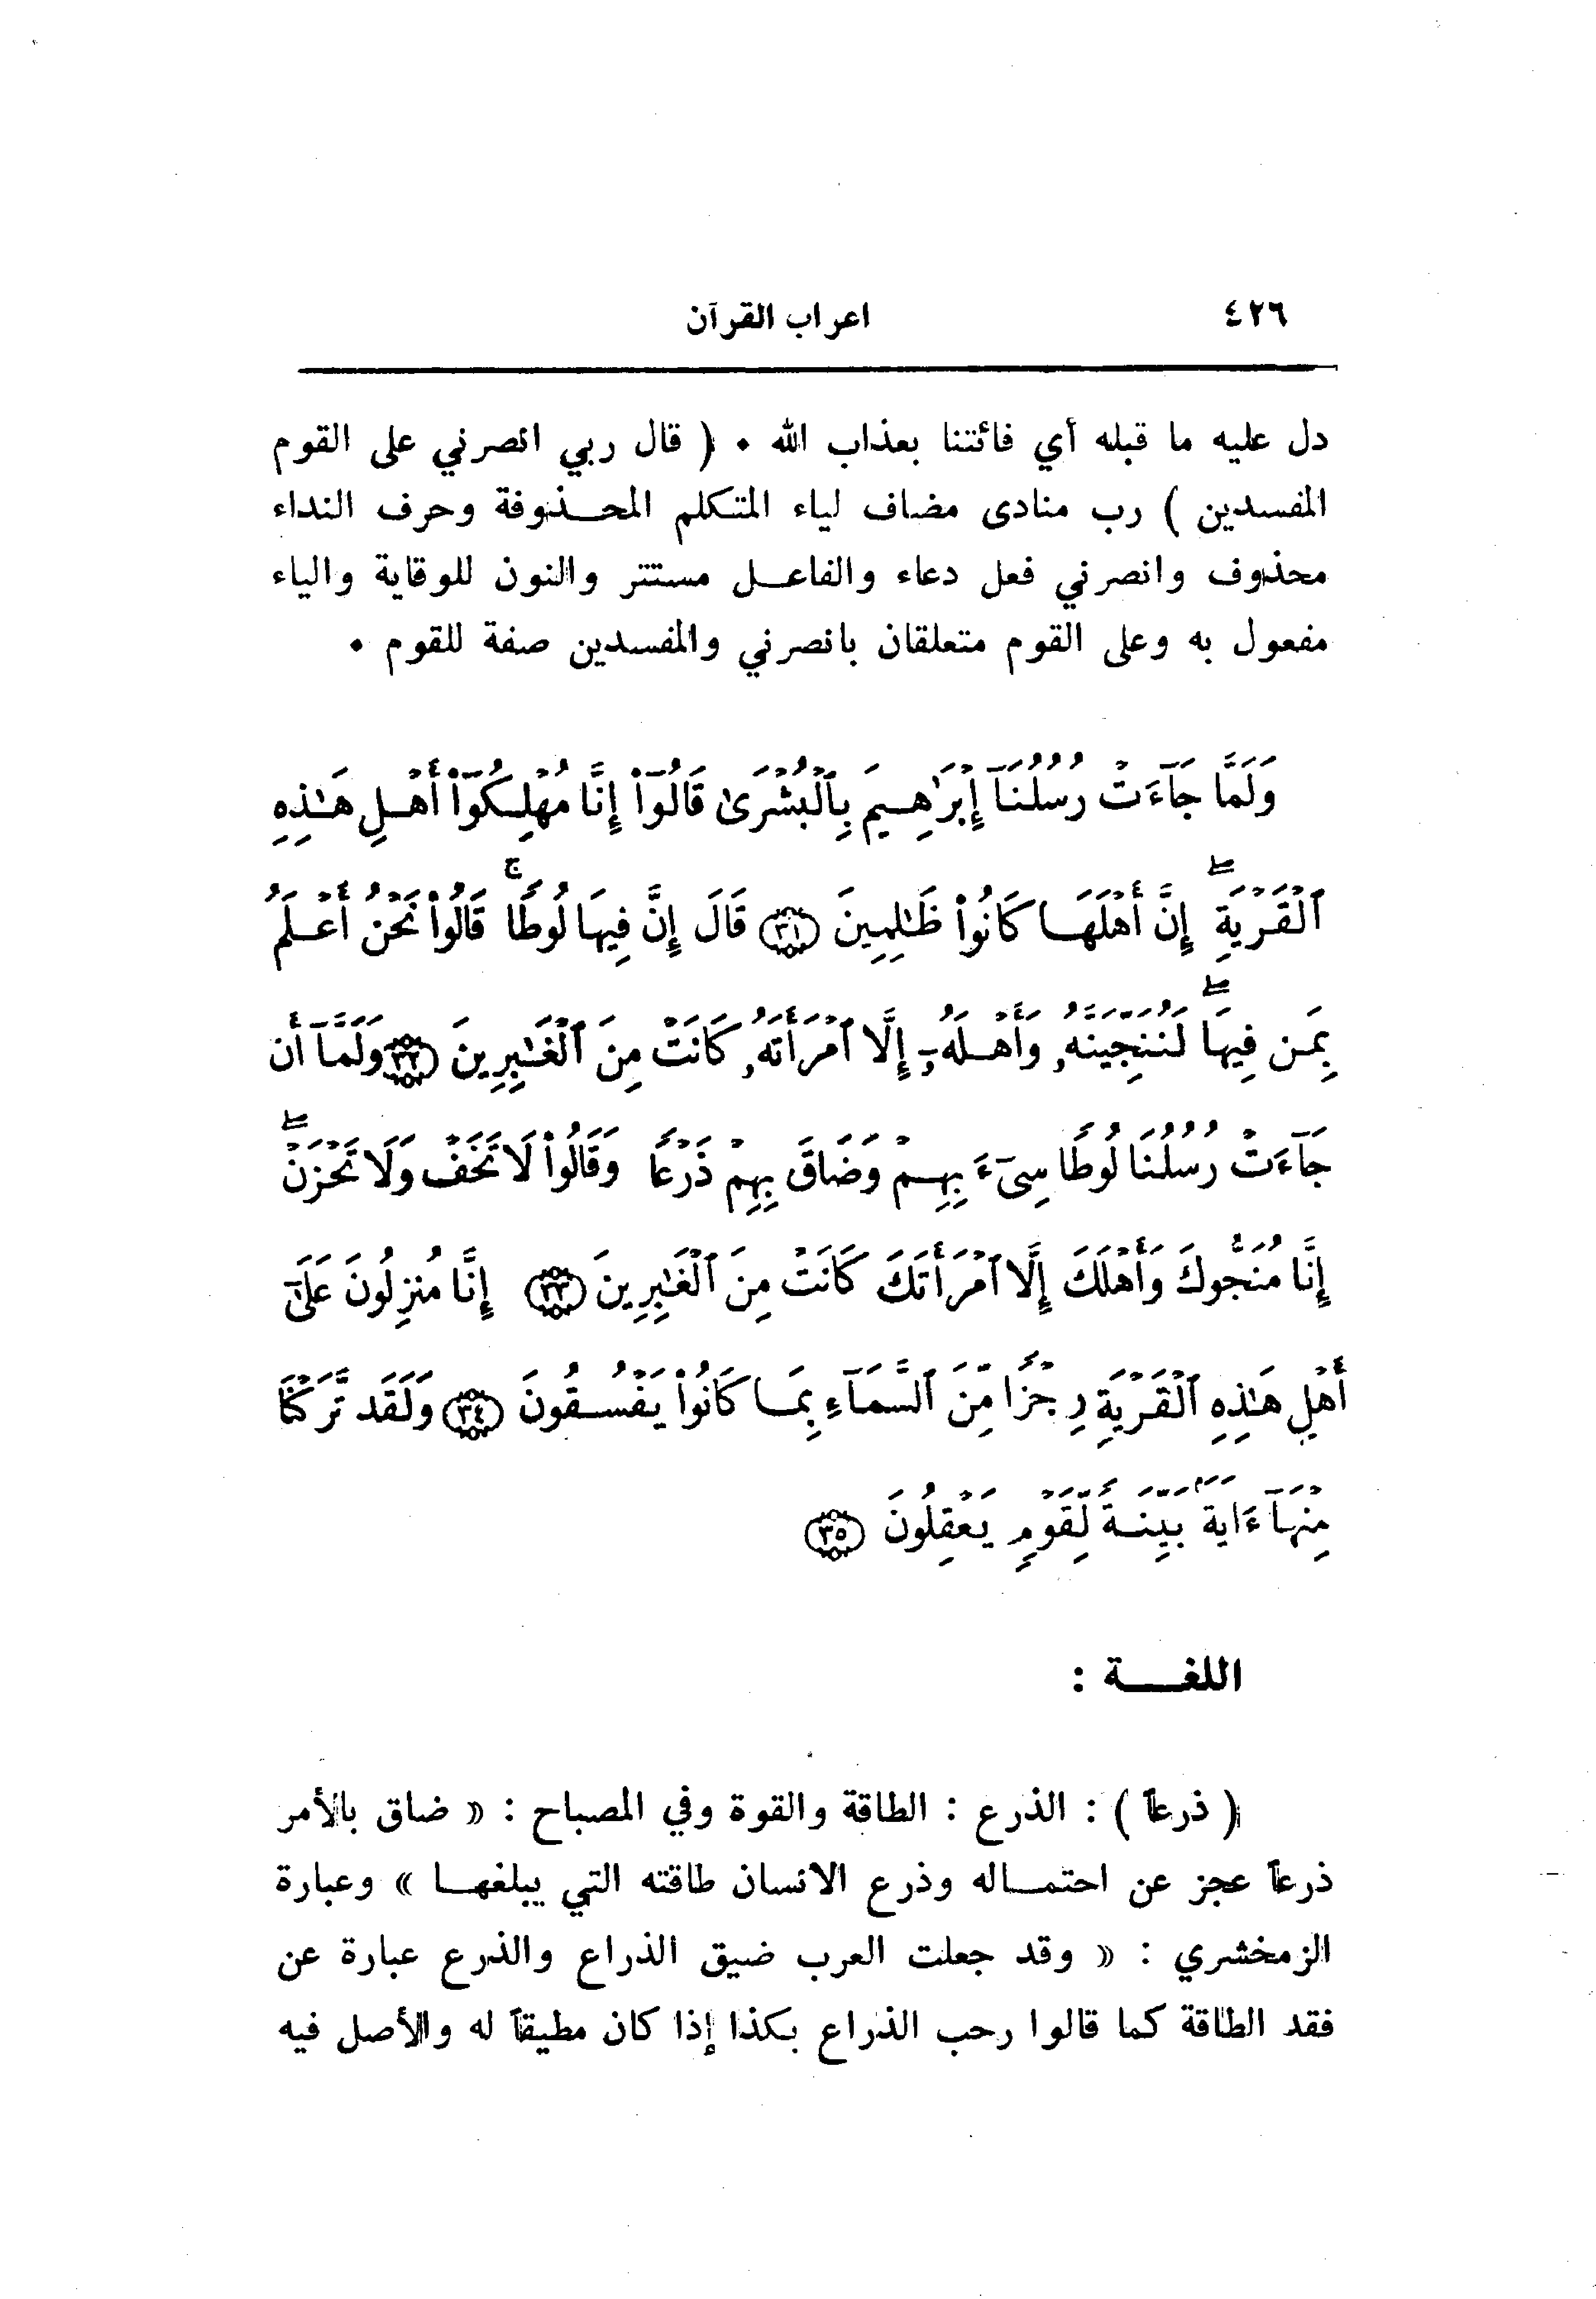 ٤٢٦ اعراب القرآن
دل عليه ما قبله أي فائتنا بعذاب الله . ( قال ربي انصرني على القوم
المفسدين ) رب منادى مضاف لياء المتكلم المحذوفة وحرف النداء
محذوف وانصرني فعل دعاء والفاعل مستتر والنون للوقاية والياء
مفعول به وعلى القوم متعلقان بانصرني والمفسدين صفة للقوم .
وَلَمَّا جَآءَتْ رُسُلُنَآ إِبْرَٰهِيمَ بِٱلْبُشْرَىٰ قَالُوٓا۟ إِنَّا مُهْلِكُوٓا۟ أَهْلِ هَـٰذِهِ
ٱلْقَرْيَةِ ۖ إِنَّ أَهْلَهَا كَانُوا۟ ظَـٰلِمِينَ ٣١ قَالَ إِنَّ فِيهَا لُوطًا ۚ قَالُوا۟ نَحْنُ أَعْلَمُ
بِمَن فِيهَا ۖ لَنُنَجِّيَنَّهُۥ وَأَهْلَهُۥٓ إِلَّا ٱمْرَأَتَهُۥ كَانَتْ مِنَ ٱلْغَـٰبِرِينَ ٣٢ وَلَمَّآ أَن
جَآءَتْ رُسُلُنَا لُوطًا سِىٓءَ بِهِمْ وَضَاقَ بِهِمْ ذَرْعًا وَقَالُوا۟ لَا تَخَفْ وَلَا تَحْزَنْ ۖ
إِنَّا مُنَجُّوكَ وَأَهْلَكَ إِلَّا ٱمْرَأَتَكَ كَانَتْ مِنَ ٱلْغَـٰبِرِينَ ٣٣ إِنَّا مُنزِلُونَ عَلَىٰٓ
أَهْلِ هَـٰذِهِ ٱلْقَرْيَةِ رِجْزًا مِّنَ ٱلسَّمَآءِ بِمَا كَانُوا۟ يَفْسُقُونَ ٣٤ وَلَقَد تَّرَكْنَا
مِنْهَآ ءَايَةًۢ بَيِّنَةً لِّقَوْمٍ يَعْقِلُونَ ٣٥
اللغـــة :
( ذرعاً ) : الذرع : الطاقة والقوة وفي المصباح : « ضاق بالأمر
ذرعاً عجز عن احتماله وذرع الانسان طاقته التي يبلغها » وعبارة
الزمخشري : « وقد جعلت العرب ضيق الذراع والذرع عبارة عن
فقد الطاقة كما قالوا رحب الذراع بكذا إذا كان مطيقاً له والأصل فيه